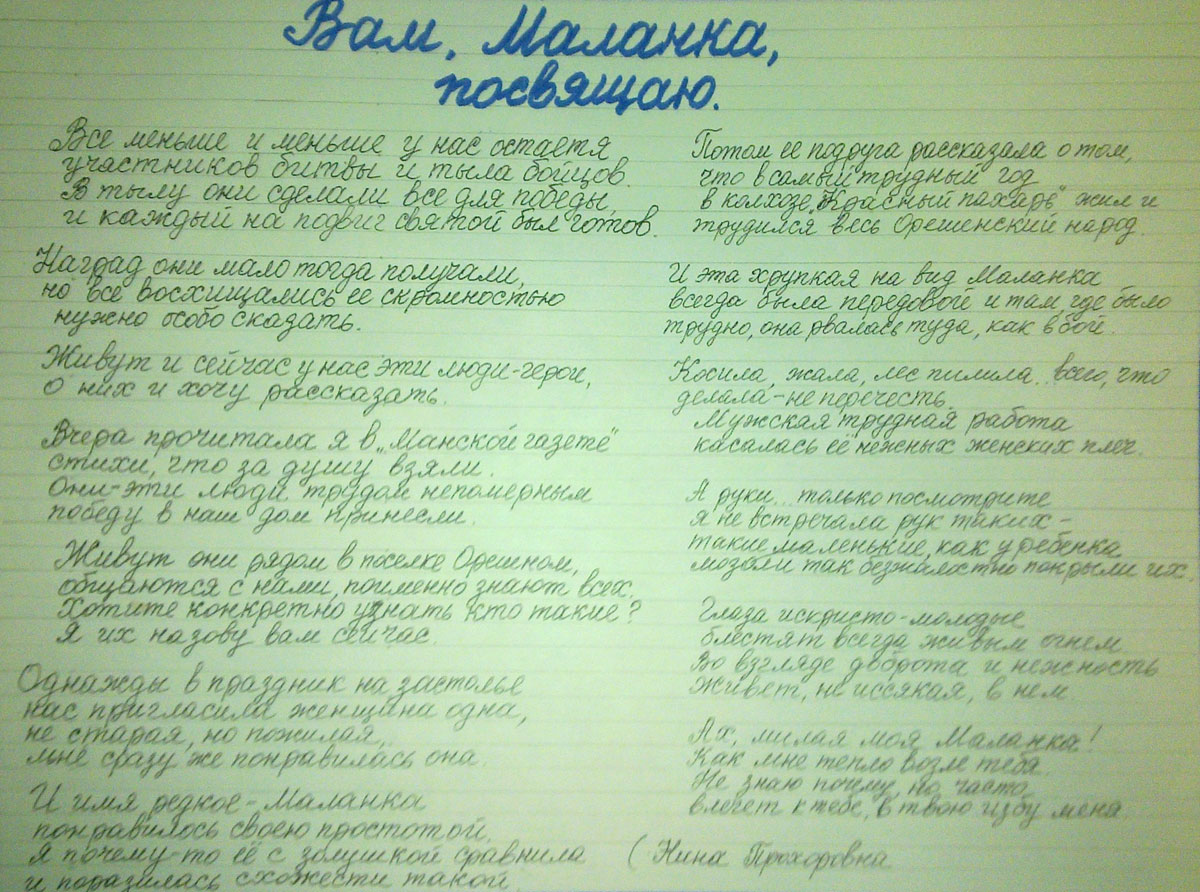 Вам, Маланка,
посвящаю.
Все меньше и меньше у нас остаетя
участников битвы и тыла бойцов.
В тылу они сделали все для победы
и каждый на подвиг святой был готов.
Наград они мало тогда получали,
но все восхищались ее скромностью
нужно особо сказать.
Живут и сейчас у нас эти люди-герои,
о них и хочу рассказать.
Вчера прочитала я в „Манской газете"
стихи, что за душу взяли.
Они-эти люди трудом непомерным
победу в наш дом принесли.
Живут они рядом в поселке Орешном,
общаются с нами, поименно знают всех.
Хотите конкретно узнать кто такие?
Я их назову вам сейчас.
Однажды в праздник на застолье
нас пригласила женщина одна,
не старая, но пожилая,
мне сразу же понравилась она.
И имя редкое-Маланка
понравилось своею простотой.
я почему-то её с золушкой сравнила
и поразилась схожести такой.
Потом ее подруга рассказала о том,
что в самый трудный год
в колхозе „Красный пахарь" жил и
трудился весь Орешенский народ.
И эта хрупкая на вид Маланка
всегда была передовой и там, где было
трудно, она рвалась туда, как в бой.
Косила, жала, лес пилила... всего, что
делала-не перечесть.
Мужская трудная работа
касалась её нежных женских плеч.
А руки... только посмотрите
я не встречала рук таких-
такие маленькие, как у ребенка
мозоли так безжалостно покрыли их.
Глаза искристо-молодые
блестят всегда живым огнем
Во взгляде доброта и нежность
живет, не иссякая, в нем.
Ах, милая моя Маланка!
Как мне тепло возле тебя.
Не знаю почему, но часто
влечет к тебе, в твою избу меня.
(Нина Прохоровна